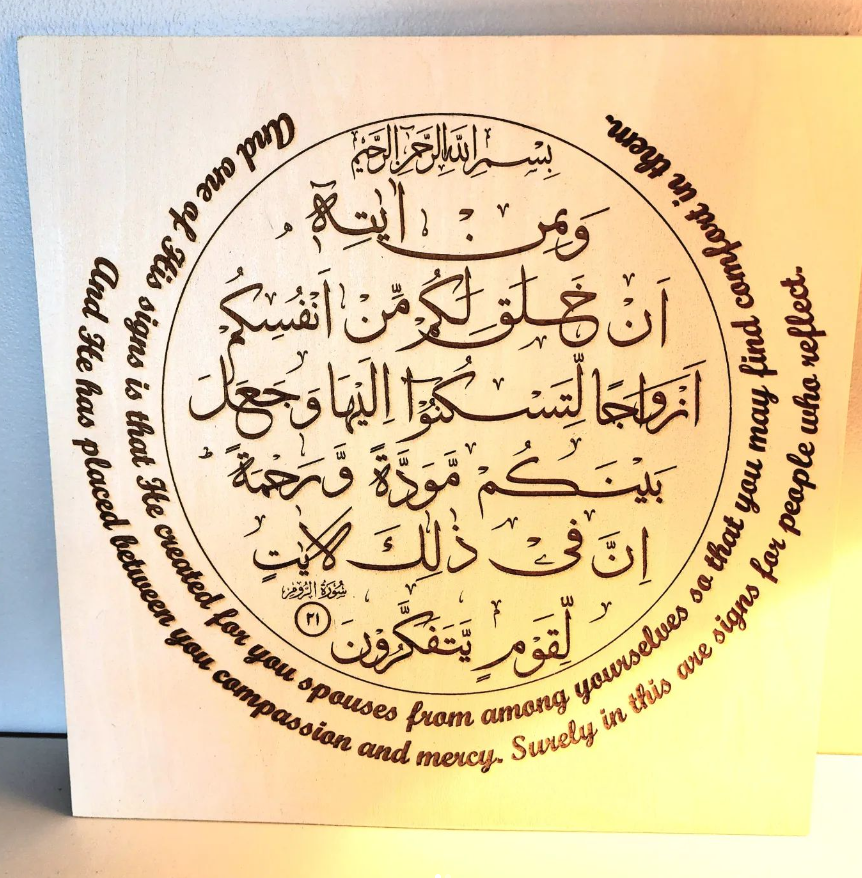 بِسْمِ اللهِ الرَّحْمٰنِ الرَّحِيْمِ
وَمِنْ اٰيٰتِهٖٓ
اَنْ خَلَقَ لَكُمْ مِّنْ اَنْفُسِكُمْ
اَزْوَاجًا لِّتَسْكُنُوْٓا اِلَيْهَا وَجَعَلَ
بَيْنَكُمْ مَّوَدَّةً وَّرَحْمَةً
اِنَّ فِىْ ذٰلِكَ لَاٰيٰتٍ
لِّقَوْمٍ يَّتَفَكَّرُوْنَ
سُوْرَةُ الرُّوْمِ
٢١
And one of His signs is that He created for you spouses from among yourselves so that you may find comfort in them.
And He has placed between you compassion and mercy. Surely in this are signs for people who reflect.